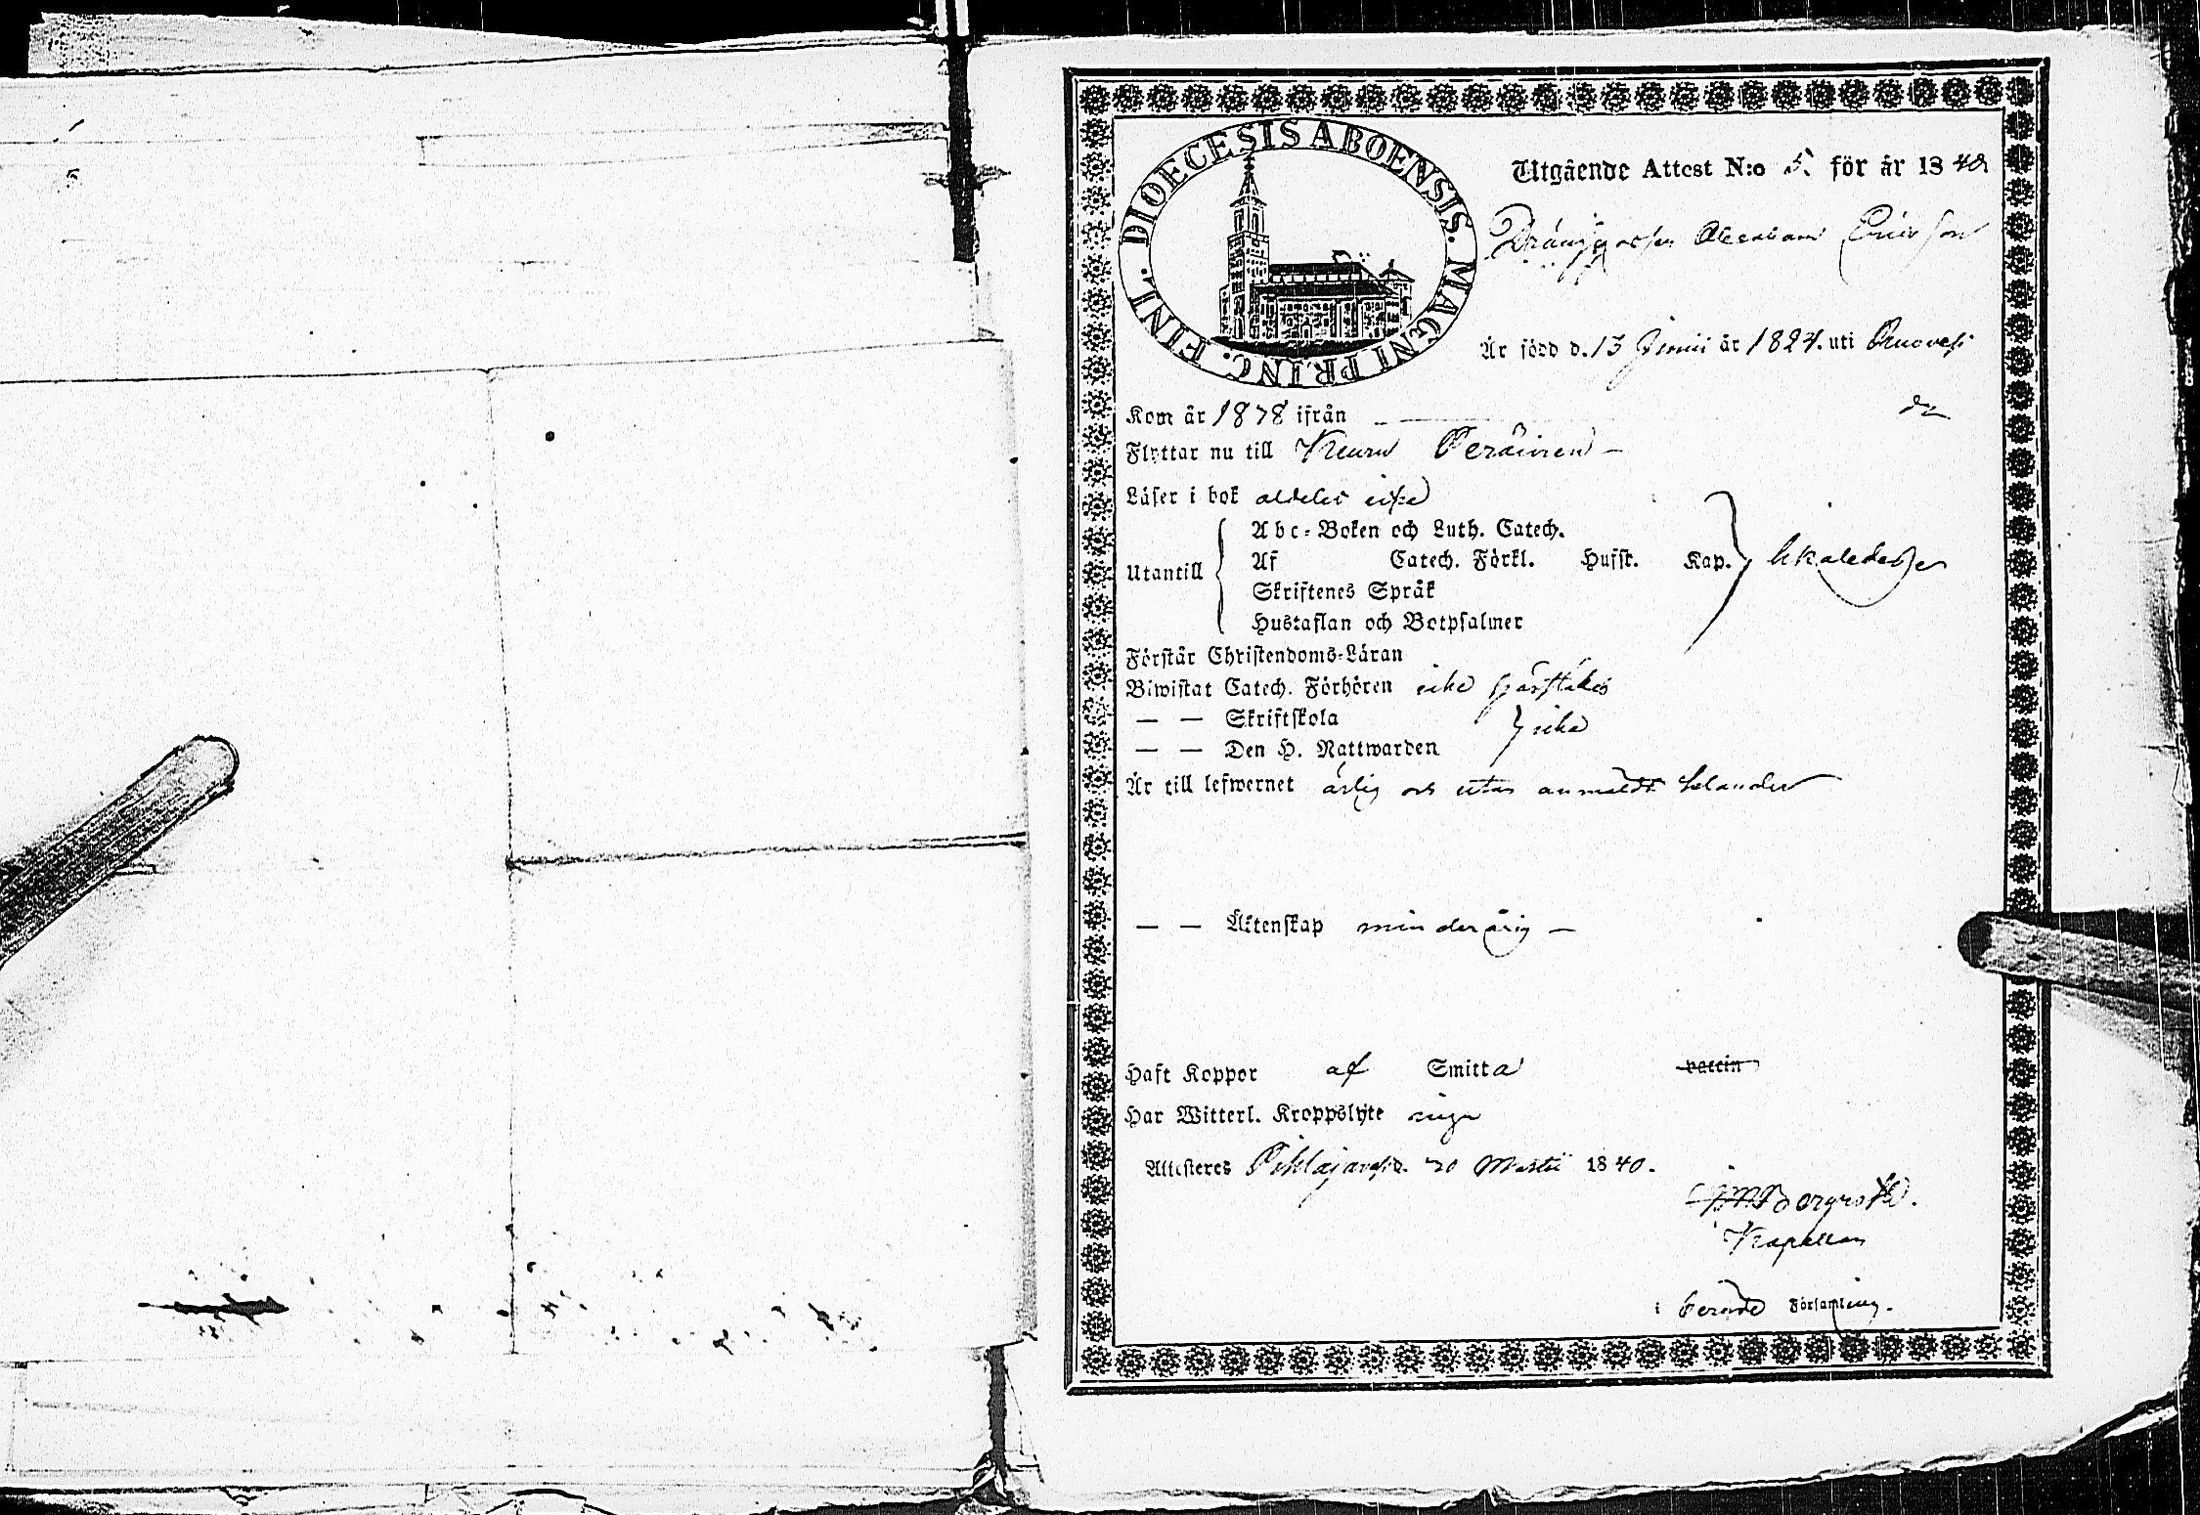 DIOECESIS ABOENSIS. MAGNI PRINC. FINL.
Utgående Attest N:o 5. för år 1840
Dränggossen Abraham Ericsson
Är född d. 13 Junii år 1824. uti
Kom år 1838 ifrån
Flyttar nu till Keuru
Läser i bok aldeles icke
Utantill
Abc-Boken och Luth. Catech.
Af Catech. Förkl. Husst. Kap.
Skriftenes Språk
Hustaflan och Botpsalmer
Förstår Christendoms-Läran
Biwistat Catech. Förhören icke
— — Skriftskola
— — Den H. Nattwarden
icke
Är till lefwernet ärlig och utan anmäldt klander
— — Äktenskap minderårig —
Haft Koppor af Smitta vaccin
Har Witterl. Kroppslyte inga
Attesteres Pihlajavesi d. 20 Martii 1840.
Bergroth.
Kapellan
i berörde Församling.